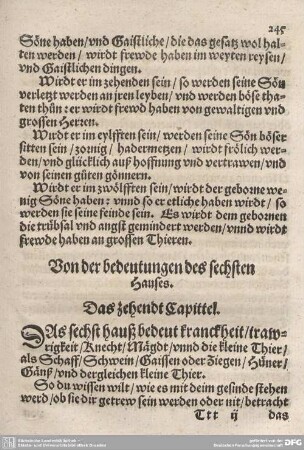 245
Söne haben/vnd Gaistliche/die das gesatz wol hal-
ten werden/ wirdt frewde haben im weyten reysen/
vnd Gaistlichen dingen.
Wirdt er im zehenden sein/ so werden seine Sön
verletzt werden an jren leyden/ vnd werden böse tha-
ten thün: er wirdt frewd haben von gewaltigen vnd
grossen Herren.
Wirdt er im eylfften sein/ werden seine Sön böser
sitten sein/ zornig/ hadermetzen/ wirdt frölich wer-
den/vnd glücklich auß hoffnung vnd vertrawen/vnd
von seinen güten gönnern.
Wirdt er im zwölfften sein/wirdt der geborne we-
nig Söne haben: vnnd so er etliche haben wirdt/ so
werden sie seine feinde sein. Es wirdt dem gebornen
die trübsal vnd angst gemindert werden/vnnd wirdt
frewde haben an grossen Thieren.
Von der bedeutungen des sechsten
Hauses.
Das zehendt Capittel.
DAs sechst hauß bedeut kranckheit/traw-
rigkeit/Knecht/Mägdt/vnnd die kleine Thier/
als Schaff/Schwein/Gaissen oder Ziegen/Hüner/
Gänß/vnd dergleichen kleine Thier.
So du wissen wilt/wie es mit deim gesinde stehen
werd/ob sie dir getrew sein werden oder nit/betracht
Ttt ij das